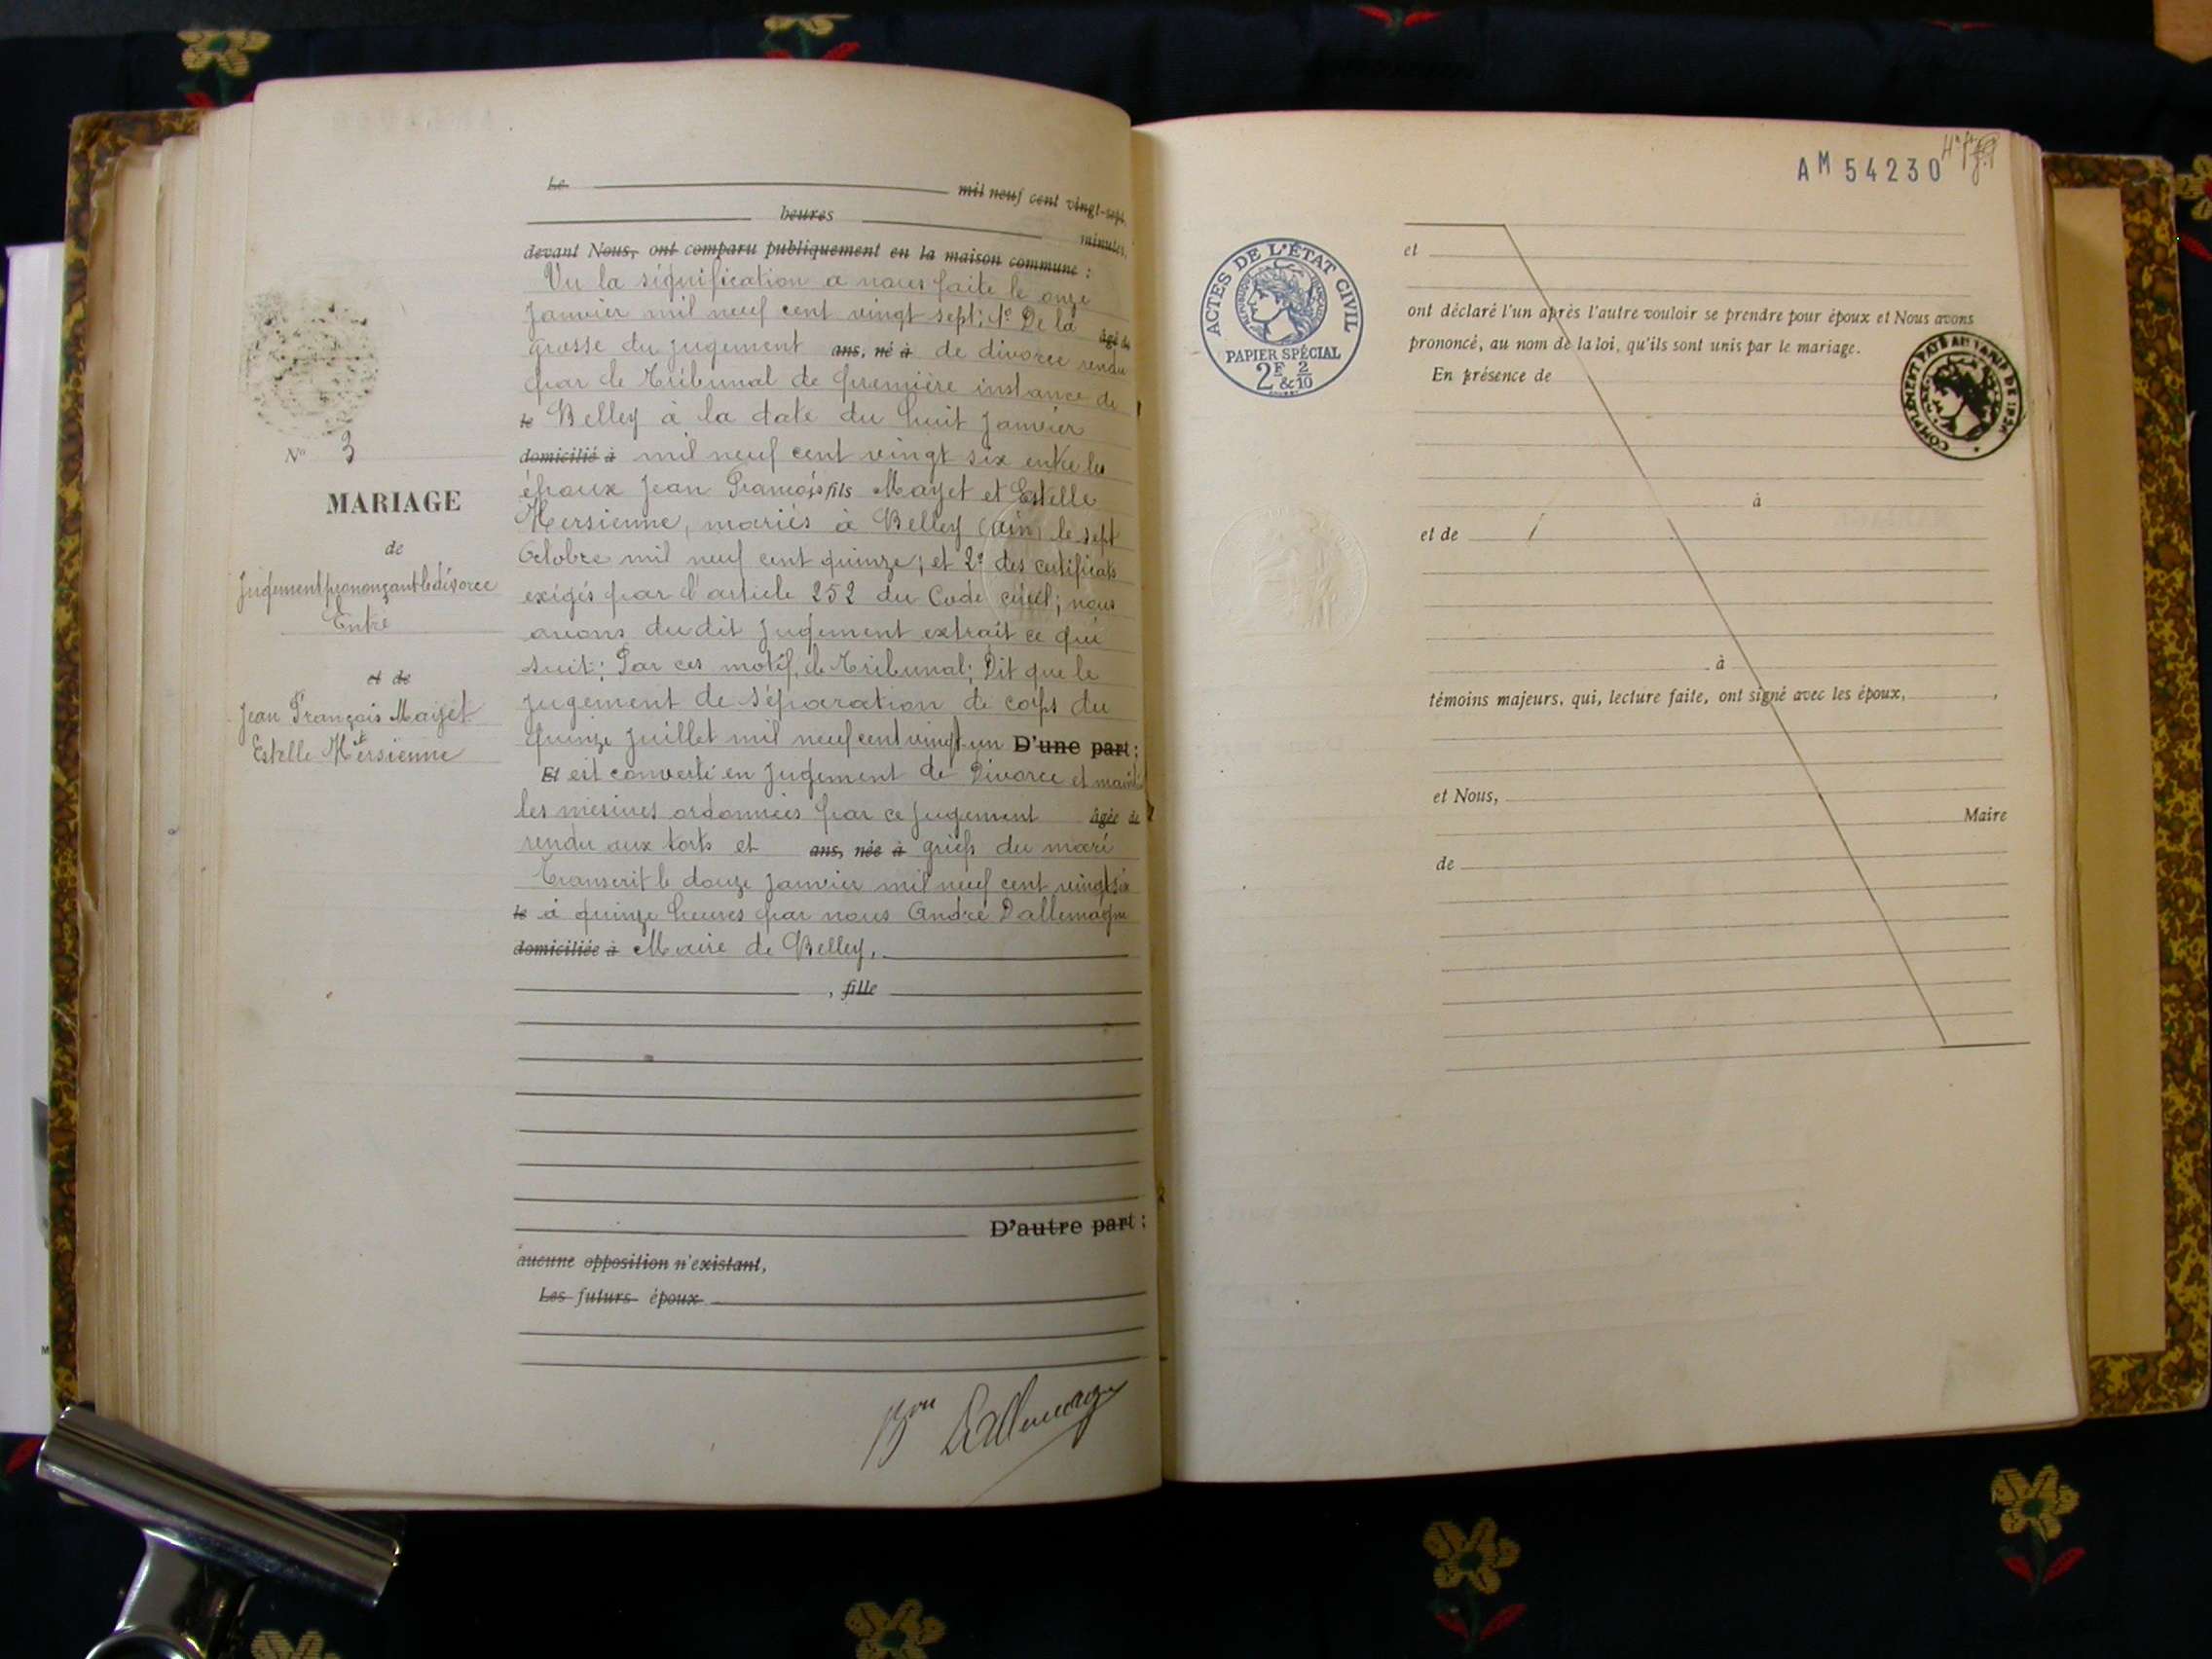 Le mil neuf cent vingt-sept,
heures minutes,
devant Nous, ont comparu publiquement en la maison commune :
Vu la signification a nous faite le onze
Janvier mil neuf cent vingt sept; 1º De la
âgé de
grosse du jugement ans, né à de divorce rendu
par le Tribunal de première instance de
le Belley à la date du huit Janvier
domicilié à mil neuf cent vingt six entre les
époux Jean François fils Mayet et Estelle
Hersienne, mariés à Belley (Ain) le sept
Octobre mil neuf cent quinze; et 2º des certificats
exigés par l'article 252 du Code civil; nous
avons du dit Jugement extrait ce qui
suit: Par ces motifs, le Tribunal; Dit que le
jugement de séparation de corps du
quinze Juillet mil neuf cent vingt un D'une part ;
Et est converti en Jugement de Divorce et
les mesures ordonnées par ce Jugement âgée de
rendu aux torts et ans, née à griefs du mari
Transcrit le douze Janvier mil neuf cent vingt six
le à quinze heures par nous André Dallemagne
domiciliée à Maire de Belley,
, fille
D'autre part :
aucune opposition n'existant,
Les futurs époux
Bon Dallemagne
Nº 3
MARIAGE
de
Jugement prononçant le divorce
Entre
et de
Jean François Mayet
et
Estelle Hersienne
AM 54230
ACTES DE L'ÉTAT CIVIL
RÉPUBLIQUE FRANÇAISE
PAPIER SPÉCIAL
2F 2/10
&c
et
ont déclaré l'un après l'autre vouloir se prendre pour époux et Nous avons
prononcé, au nom de la loi, qu'ils sont unis par le mariage.
En présence de
à
et de
à
témoins majeurs, qui, lecture faite, ont signé avec les époux, ,
et Nous,
Maire
de